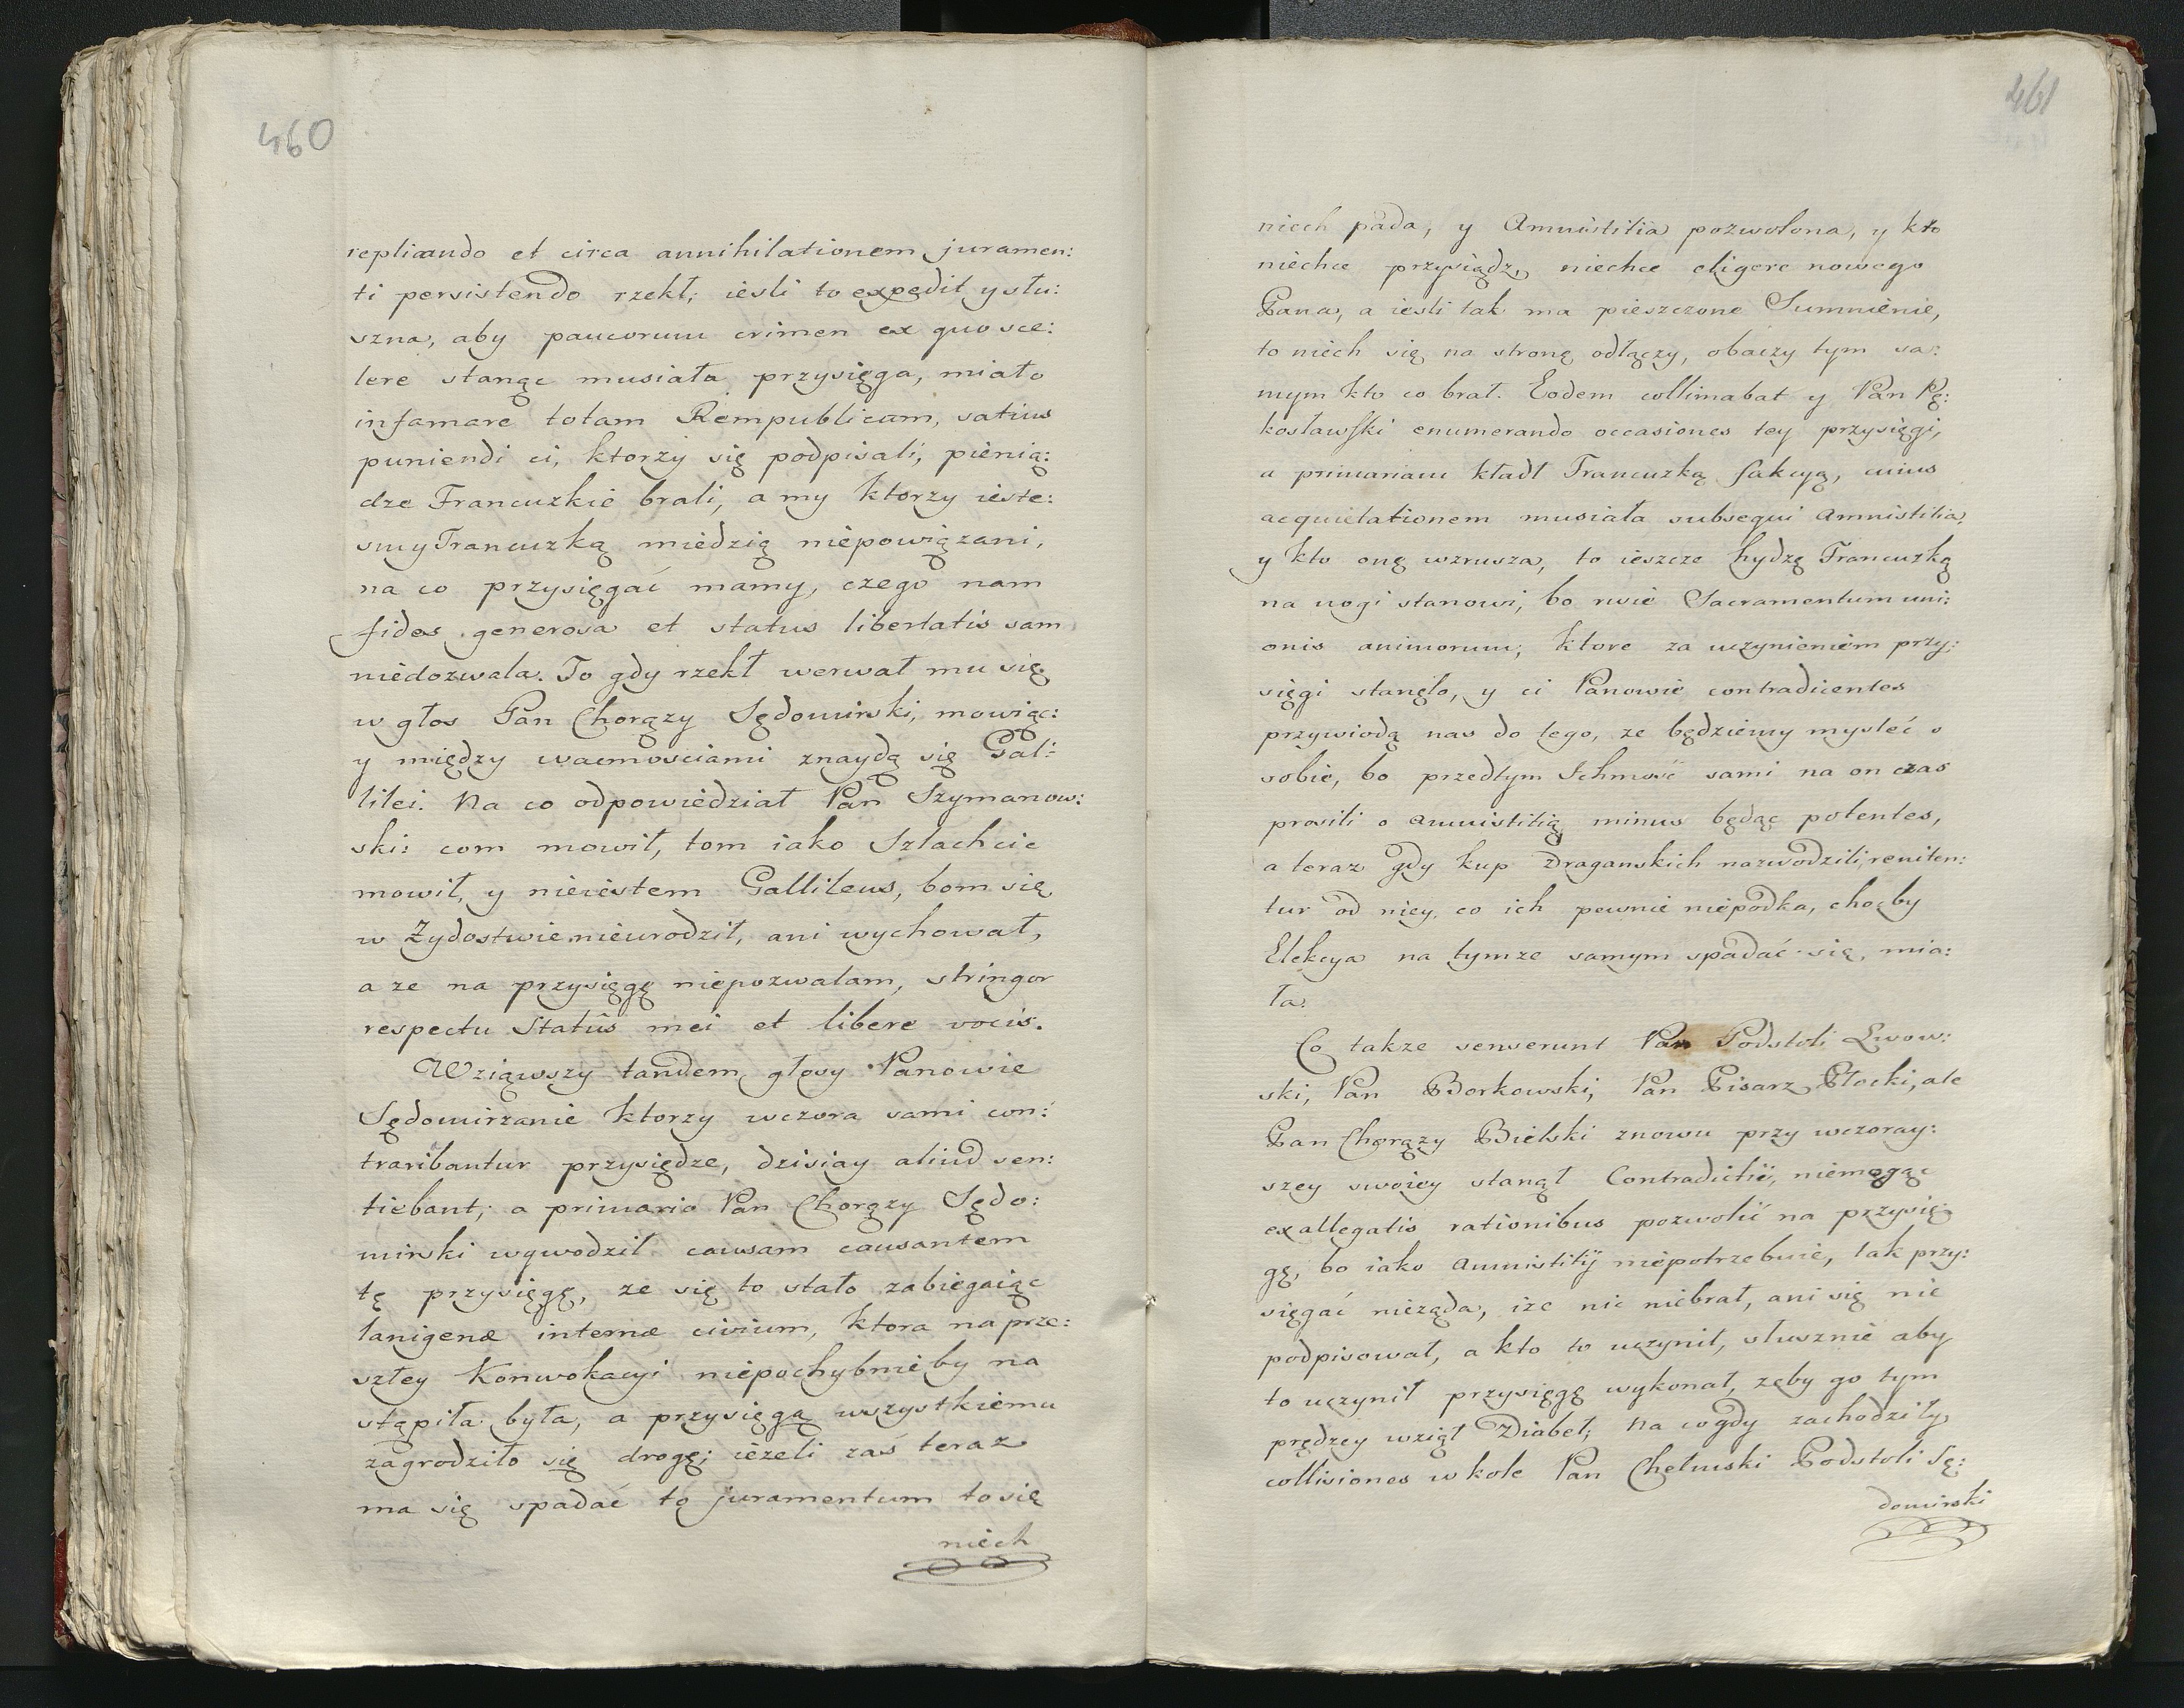 460
replicando et circa annihilationem juramen:
ti persistendo rzekł; iesli to expedit y słu:
szna, aby paucorum crimen ex quo sce:
lere stanąc musiała przysięga, miało
infamare totam Rempublicam, satius
puniendi ci, ktorzy się podpisali, pienią:
dze Francuzkie brali, a my ktorzy ieste:
smy Francuzką miedzią niepowiązani,
na co przysięgać mamy, czego nam
fides generosa et status libertatis sam
niedozwala. To gdy rzekł werwał mu się
w głos Pan Chorązy Sędomirski, mowiąc:
y między wacmosciami znaydą się Gal:
lilei. Na co odpowiedział Pan Szymanow:
ski: com mowił, tom iako Szlachcic
mowił, y nieiestem Gallileus, bom się
w Zydostwie nieurodził, ani wychował,
a ze na przysięgę niepozwalam, stringor
respectu Statûs mei et libere vocis.
Wziąwszy tandem głosy Panowie
Sędomirzanie ktorzy wczora sami con:
traribantur przysiędze, dzisiay aliud sen:
tiebant; a primario Pan Chorązy Sędo:
mirski wywodził causam causantem
tę przysięgę, ze się to stało zabiegaiąc
lanigenæ internæ civium, ktora na prze:
szłey Konwokacyi niepochybnie by na
stąpiła była, a przysięgą wszystkiemu
zagrodziło się drogę; iezeli zaś teraz
ma się spadać to juramentum to się
niech
461
niech pada, y Amnistitia pozwolona, y kto
niechce przysiądz, niechce eligere nowego
Pana, a iesli tak ma pieszczone Sumnienie,
to niech się na stronę odłączy, obaczy tym sa:
mym kto co brał. Eodem collimabat y Pan Pę:
kosławski enumerando occasiones tey przysięgi,
a primariam kładł Francuzką fakcyą, cuius
acquietationem musiała subsequi Amnistitia,
y kto onę wzrusza, to ieszcze hydzę Francuzką
na nogi stanowi, bo rwie Sacramentum uni:
onis animorum; ktore za uczynieniem przy:
sięgi stanęło, y ci Panowie contradicentes
przywiodą nas do tego, ze będziemy mysleć o
sobie, bo przedtym Ichmość sami na on czas
prosili o amnistitią minus będąc potentes,
a teraz gdy kup Draganskich nazwodzili, reniten:
tur od niey, co ich pewnie niepodka, choc by
Elekcya na tymze samym spadać się, mia:
ła.
Co takze senserunt Pan Podstoli Lwow:
ski, Pan Borkowski, Pan Pisarz Płocki, ale
Pan Chorązy Bielski znowu przy wczoray:
szey swoiey stanął Contradictii, niemogąc
ex allegatis rationibus pozwolić na przysię:
gę, bo iako Amnistitij niepotrzebuie, tak przy:
sięgać nieząda, ize nic niebrał, ani się nie
podpisował, a kto to uczynił, słusznie aby
to uczynił przysięgę wykonał, zęby go tym
prędzey wziął Diabeł; na co gdy zachodziły
collisiones w kole Pan Chełmski Podstoli Sę:
domirski